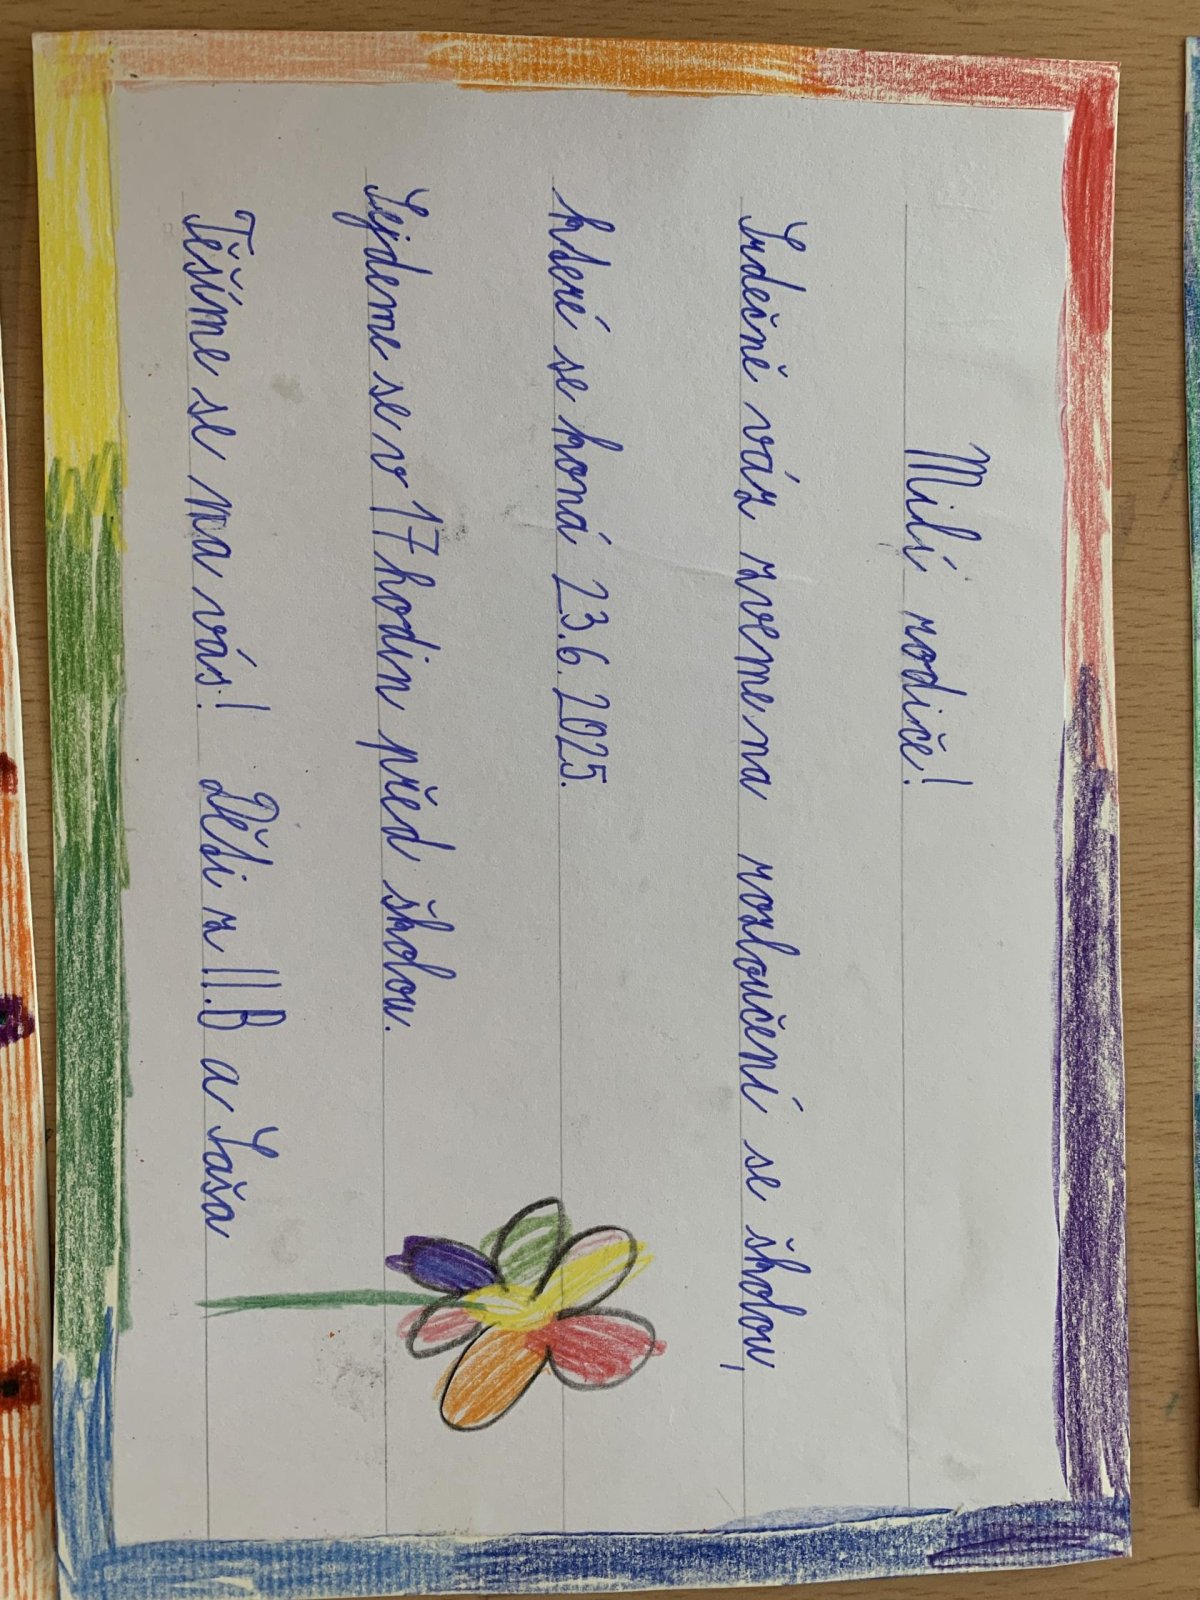 Milí rodiče!
Srdečně váz zveme na rozloučení se školou,
které se koná 23.6.2025.
Sejdeme se v 17 hodin před školou.
Těšíme se na vás! Děti z II.B a Saša